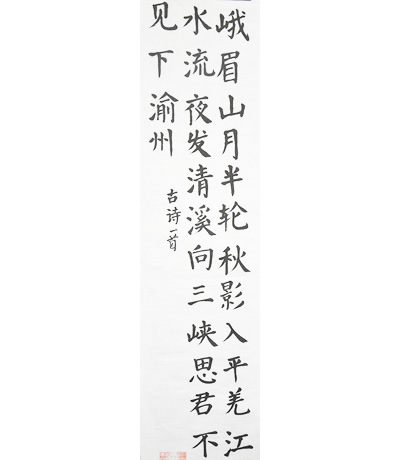 峨眉山月半轮秋影入平羌江
水流夜发清溪向三峡思君不
见下渝州
古诗一首